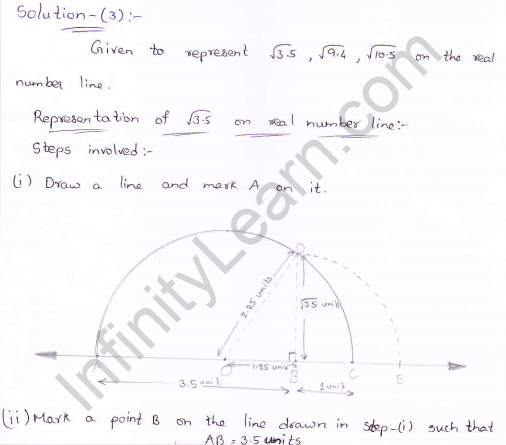 Solution-(3):-
Given to represent √3.5, √9.4, √10.5 on the real
number line.
Representation of √3.5 on real number line:-
Steps involved:-
(i) Draw a line and mark A on it.
D
2.25 units
√3.5 units
A
O
1.25 units
B
C
E
3.5 unit
1 unit
(ii) Mark a point B on the line drawn in step-(i) such that
AB = 3.5 units
InfinityLearn.com